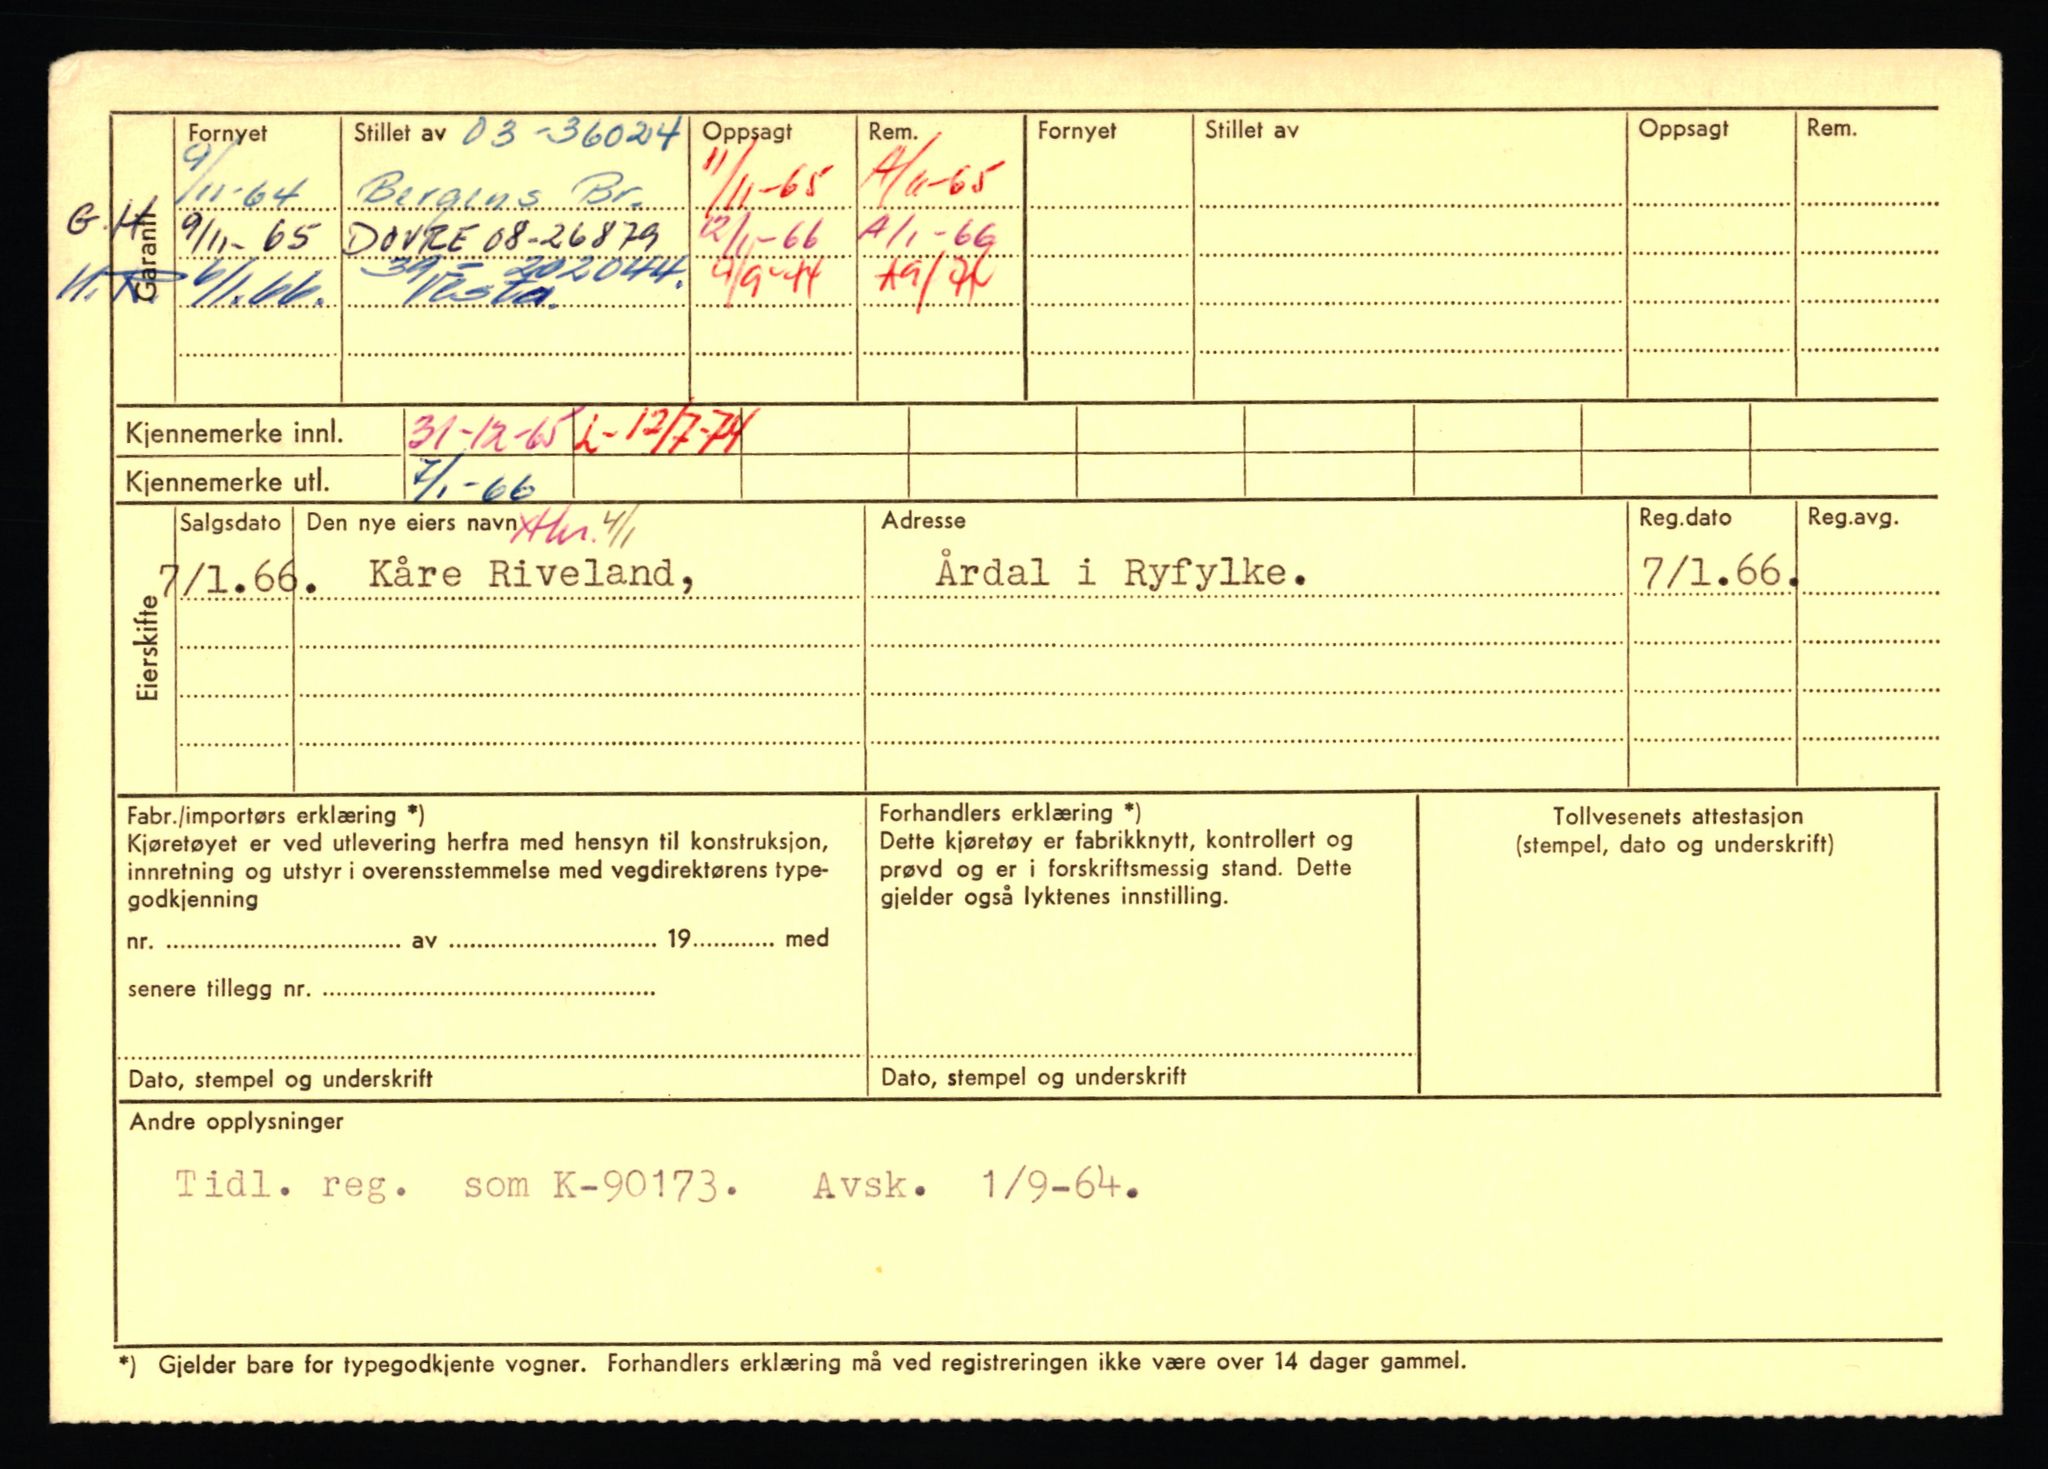 Fornyet Stillet av 03-36024 Oppsagt Rem. Fornyet Stillet av Oppsagt Rem.
9/11-64 Bergens Br. 11/11-65 A/11-65
G.H. 9/11-65 DOVRE 08-26879 12/1-66 A/1-66
6/1.66. 39-202044. Vesta.
Garanti
Kjennemerke innl. 31-12-65 L-12/7-74
Kjennemerke utl. 7/1-66
Eierskifte
Salgsdato Den nye eiers navn 4/1 Adresse Reg.dato Reg.avg.
7/1.66. Kåre Riveland, Årdal i Ryfylke. 7/1.66.
Fabr./importørs erklæring *)
Kjøretøyet er ved utlevering herfra med hensyn til konstruksjon,
innretning og utstyr i overensstemmelse med vegdirektørens type-
godkjenning
nr. ........ av ........ 19........ med
senere tillegg nr. ........
Dato, stempel og underskrift
Forhandlers erklæring *)
Dette kjøretøy er fabrikknytt, kontrollert og
prøvd og er i forskriftsmessig stand. Dette
gjelder også lyktenes innstilling.
Dato, stempel og underskrift
Tollvesenets attestasjon
(stempel, dato og underskrift)
Andre opplysninger
Tidl. reg. som K-90173. Avsk. 1/9-64.
*) Gjelder bare for typegodkjente vogner. Forhandlers erklæring må ved registreringen ikke være over 14 dager gammel.